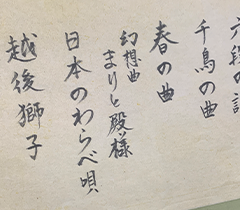 六段の調
千鳥の曲
春の曲
幻想曲
まりと殿様
日本のわらべ唄
越後獅子